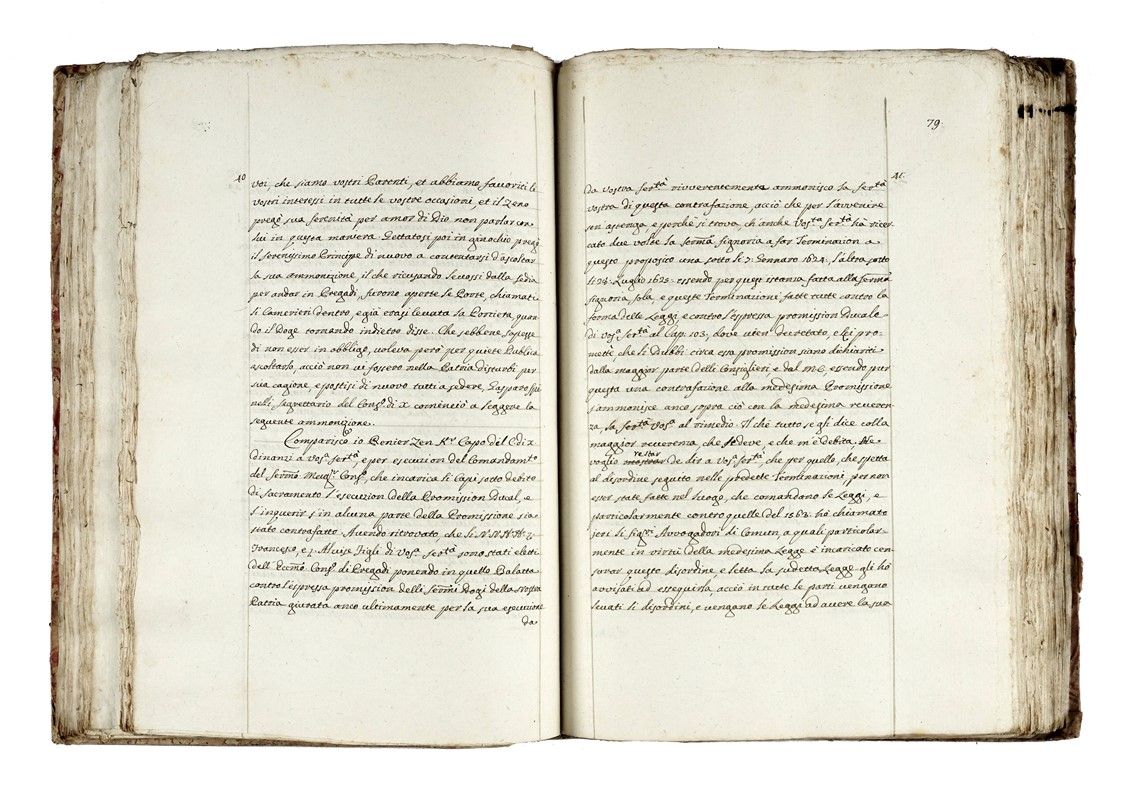 40
voi, che siamo vostri Parenti, et abbiamo favoriti li
vostri interessi in tutte le vostre occasioni, et il Zeno
pregò sua serenità per amor di Dio non parlar con
lui in questa maniera. Gettatosi poi in genochio pregò
il serenissimo Principe di nuovo a contentarsi d'ascoltar
la sua ammonizione, il che ricusando levossi dalla sedia
per andar in Pregadi, furono aperte le Porte, chiamati
li Camerieri dentro, e già erasi levata la Portiera, quan-
do il Doge tornando indietro disse. Che sebbene sapesse
di non esser in obbligo, voleva però per quiete Publica
ascoltarlo, acciò non vi fossero nella Patria disturbi per
sua cagione, e postisi di nuovo tutti a sedere, Gasparo Spi
nelli segrettario del Cons.º di X cominciò a leggere la
seguente ammonizione.
Comparisco io Renier Zen K.r Capo del C di X
dinanzi a Vos.a Ser.tà, e per esecuzion del Comandam.to
del Sermo Magg.r Cons.º, che incarica li Capi sotto debito
di Sacramento l'esecuzion della Promission Ducal, e
l'inquerir s'in alcuna parte della Promissione sia
stato contrafatto. Avendo ritrovato, che li N.N.H.H. z.
Francesco, e z. Alvise Figli di Vos.a Ser.tà sono stati eletti
dell' Eccmo Cons.º di Pregadi ponendo in quello Balatta
contro l'espressa promission delli Sermi Dogi della Nostra
Patria giurata anco ultimamente per la sua esecuzione
da
79
41
da Vostra Ser.tà riverentemente ammonisco la Ser.tà
vostra di questa contrafazione, acciò che per l'avvenire
sen' astenga, e perchè si trova, ch'anche Vos.a Ser.tà hà ricer-
cato due volte la Serma Signoria a far Terminazion a
questo proposito una sotto li 7: Gennaro 1624: l'altra sotto
li 28: Luglio 1625: essendo per quest' istanza fatta alla Serma
Signoria, sola, e queste Terminazioni fatte tutte contro la
forma delle Leggi, e contro l'espressa promission Ducale
di Vos.a Ser.tà al Cap. 103: dove vien decretato, e lei pro-
mette che li dubbi circa essa promission siano dichiariti
dalla maggior parte delli Consiglieri e dal M.C, essendo pur
questa una contrafazione alla medesima Promissione
l'ammonisce anco sopra ciò con la medesima reveren-
za, la Ser.tà Vos.a al rimedio. Il che tutto se gli dice colla
maggior reverenza che si deve, e che m'è debita. Ne
voglio restar de dir a Vos.a Ser.tà, che per quello, che spetta
al disordine seguito nelle predette Terminazioni, per non
esser state fatte nel luogo, che comandano le Leggi, e
particolarmente contro quelle del 1563: hò chiamato
jeri li Sig.ri Avvogadori di Comun, a quali particolar-
mente in virtù della medesima Legge è incaricato cen-
surar questo disordine, e letta la sudetta Legge gli hò
avvisati ad esseguirla acciò in tutte le parti vengano
levati li disordini, e vengano le Leggi ad avere la sua